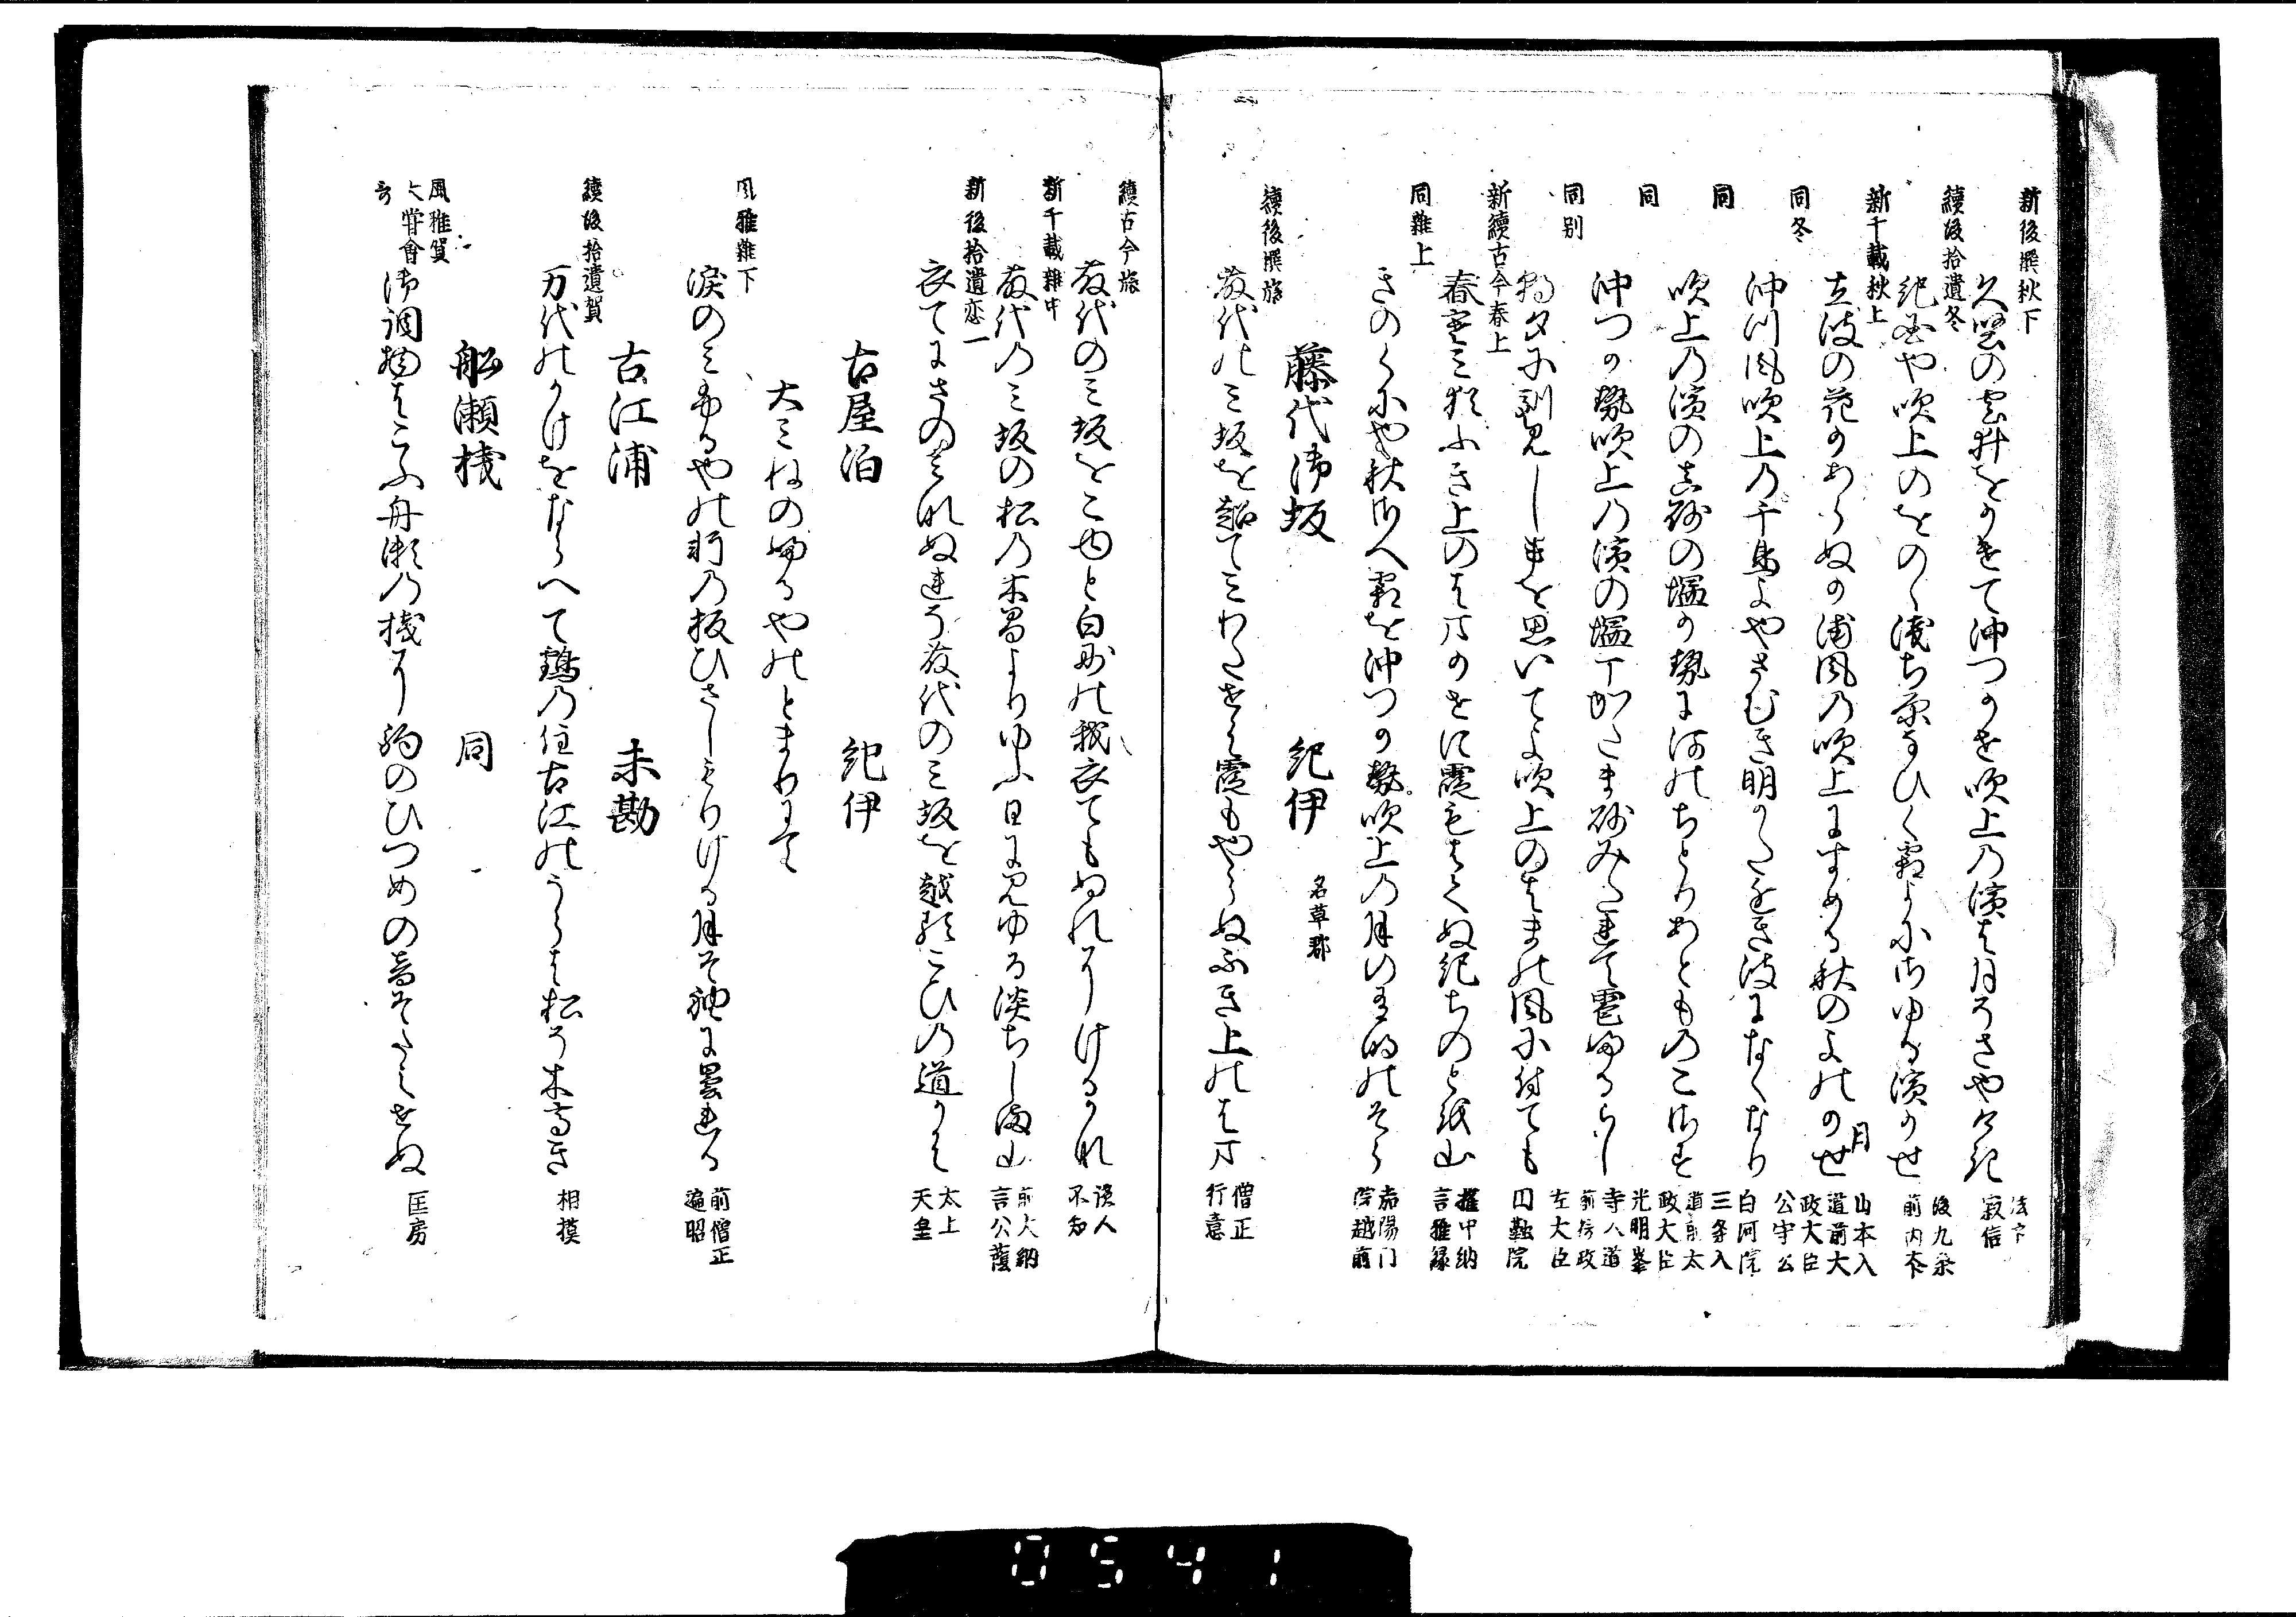 新後撰秋下
久堅の雲井をかけて沖つかせ吹上の濱は月そさやけき
法下
寂信
續後拾遺冬
紀国や吹上のをのゝ浅ち原なひく霜よにさゆる濱かせ
後九条
前内大
新千載秋上
立波の花かあらぬか浦風の吹上にすめる秋のよの
月
山本入
道前大
政大臣
公守公
同冬
沖つ風吹上の千鳥よやさむき明かたちかき波になくなり
白河院
同
吹上の濱の真砂の塩かせにきえ
三条入
道前太
政大臣
同
沖つかせ吹上の濱の塩
ま砂みたれて雹ふるらし
光明峯
寺入道
前摂政
左大臣
同別
朝夕に訓見し事を思いてよ吹上のはまの風に付ても
鞍院
新續古今春上
春きてはふき上のはまのかせに霞もはてぬ紀ちのとを山
權中納
言雅縁
同雜上
きのくにや秋さへ霜を沖つかせ吹上の月の有明のそら
嘉陽门
院越前
藤代御坂 紀伊 名草郡
續後撰旅
藤代のみ坂を越てみわたせは霞もやらぬふき上のはま
僧正
行意
續古今旅
藤代のみ坂をこゆと白妙の我衣てもぬれにけるかな
讀人
不知
新千載雜中
藤代のみ坂の松の木間よりゆふ日に見ゆる淡ちしま山
前大納
言公蔭
新後拾遺恋一
衣てにさのみ
ぬれそ藤代のみ坂を越ぬこひの道かは
太上
天皇
古屋泊 紀伊
大みねのふるやのとまりにて
風雅雜下
涙のみふるやの軒の板ひさしもりける月そ袖に曇れる
前僧正
遍昭
古江浦 未勘
續後拾遺賀
万代のかけをならへて鶴の住古江のうらは松そ木高き
相摸
船瀬棧 同
風雅賀
大甞會
哥
御調物はこふ舟瀬の棧に駒のひつめの音そたえせぬ
匡房
0541